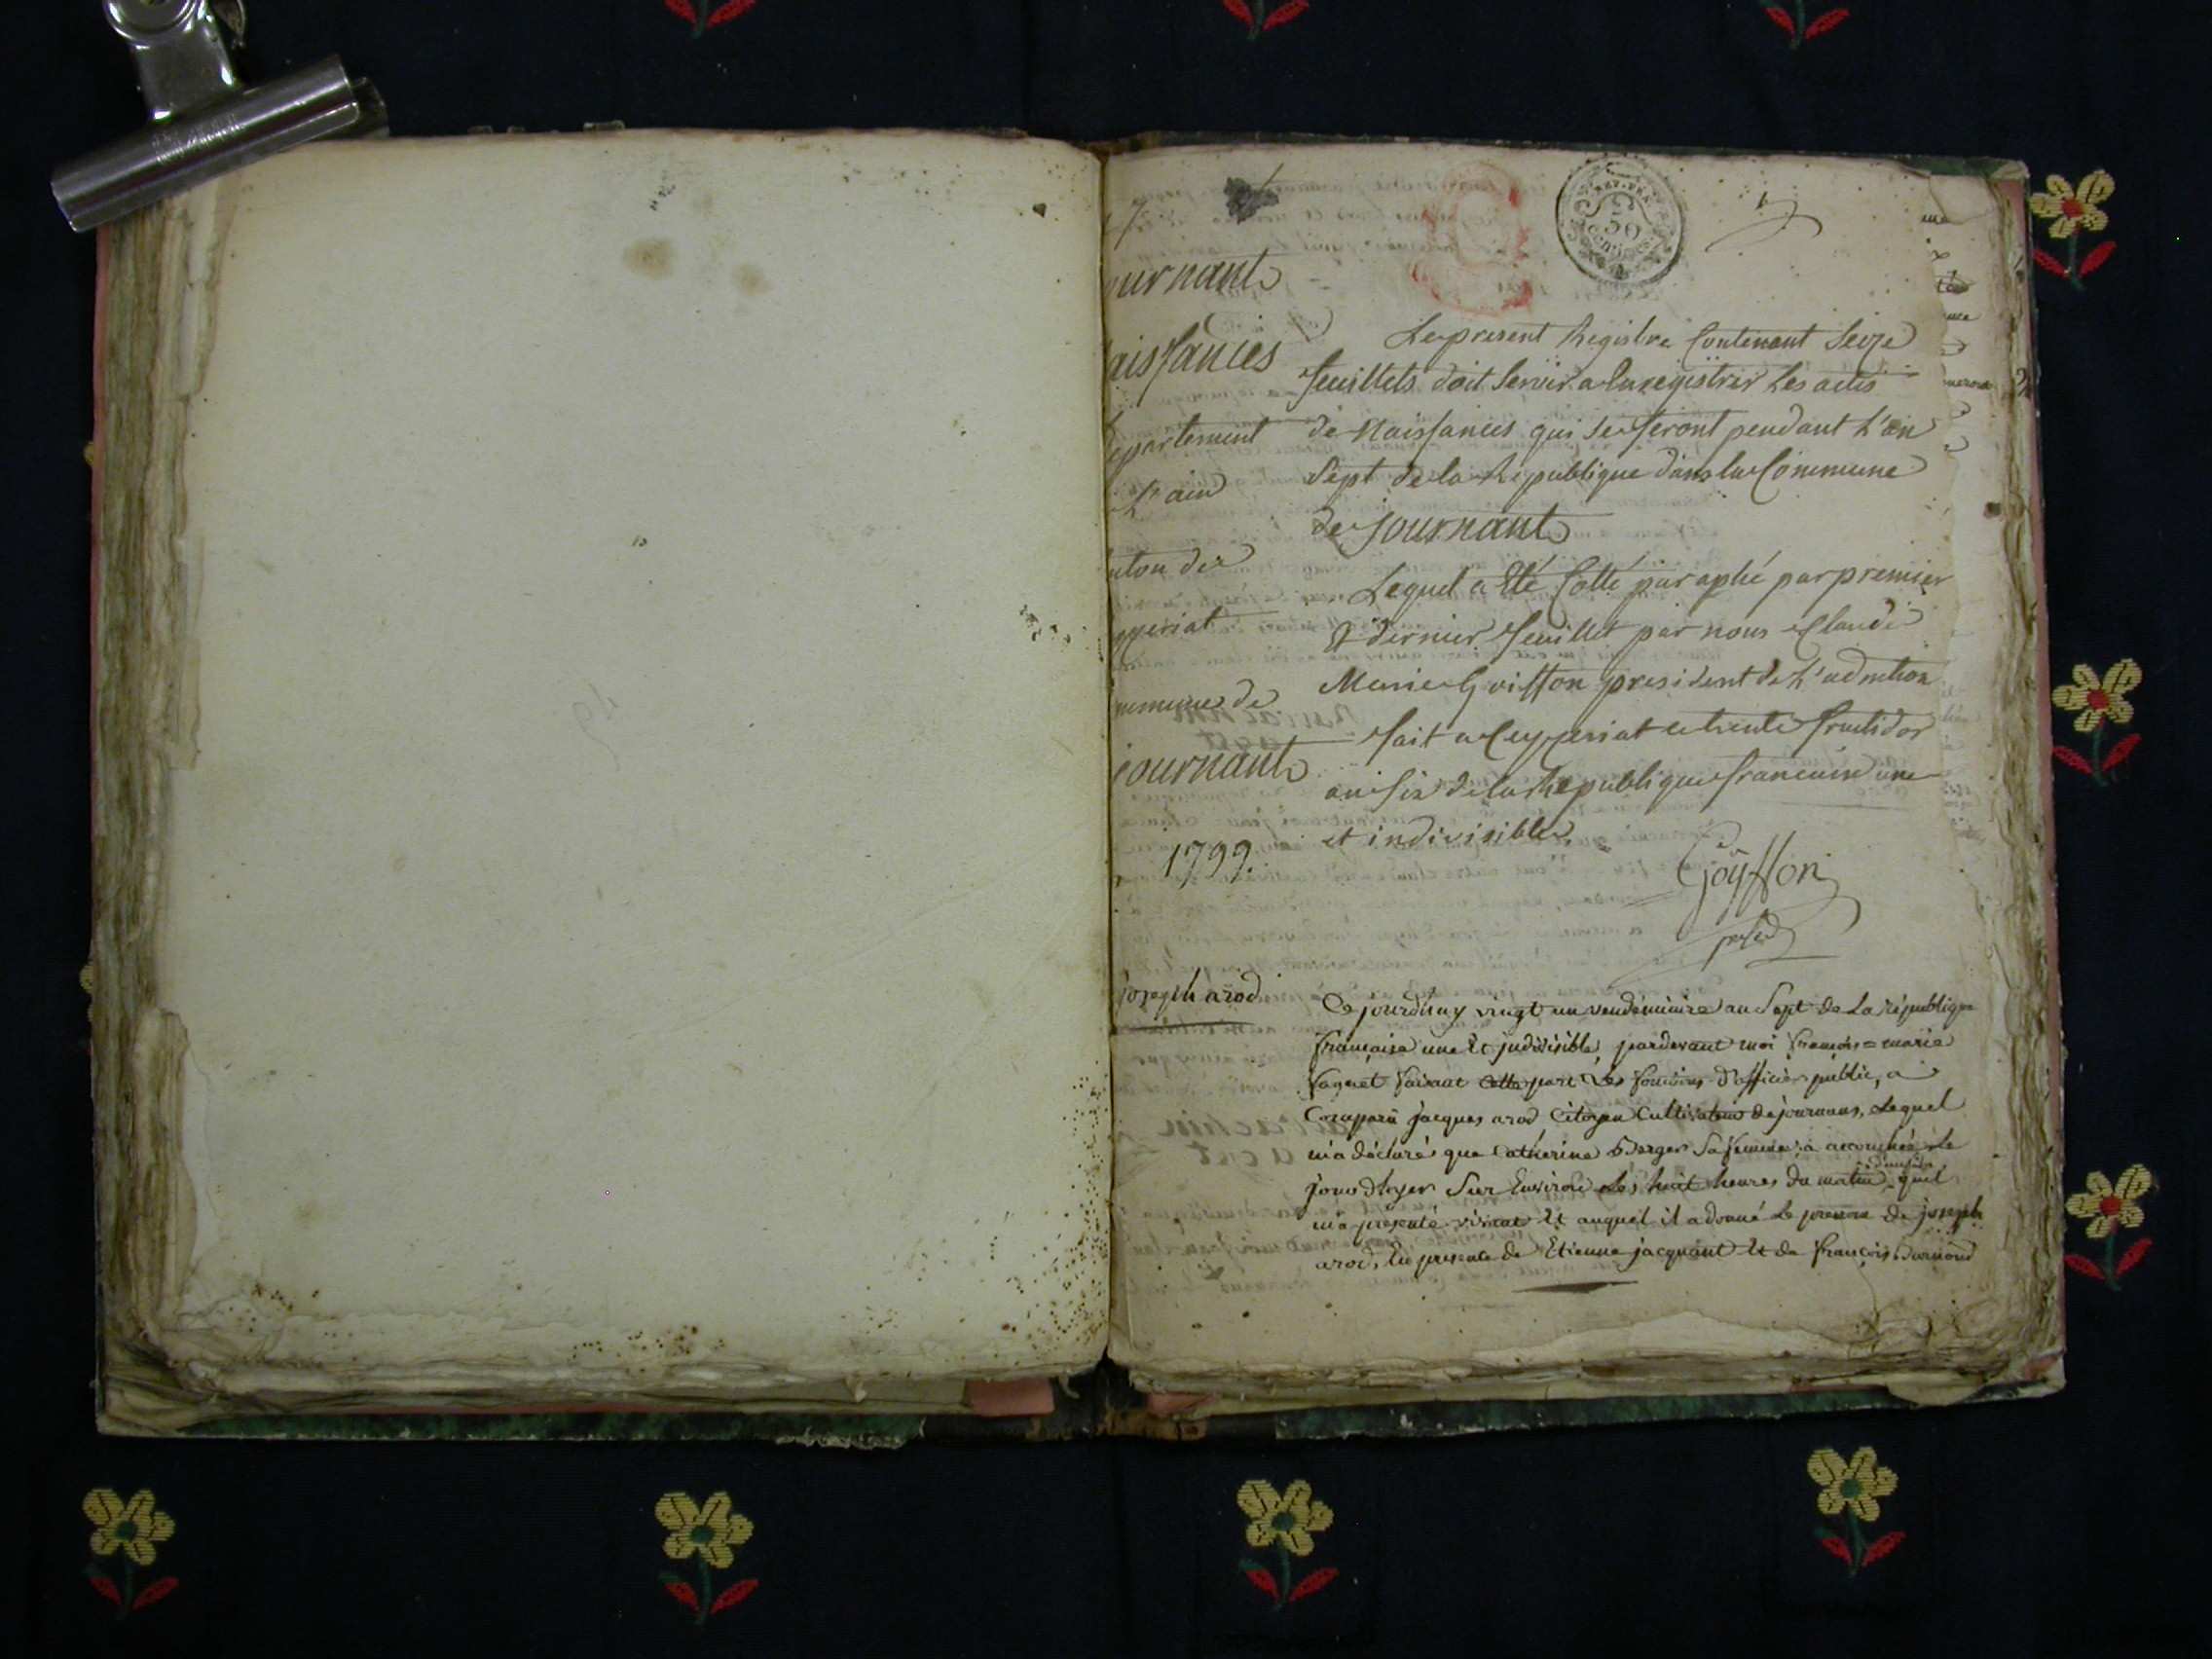 7
ournant
aissances
epartement
L'ain
nton de
yzeriat
mmune de
journant
1799.
REP. FRA.
50
centimes
1
Le present Registre Contenant Seize
feuillets doit servir a Enregistrer Les actes
de Naissances qui se feront pendant L'an
Sept de la Republique dans la Commune
de journant
Lequel a Eté Cotté paraphé par premier
& dernier feuillet par nous Claude
Marie Goiffon president de L'admtion
fait a Ceyzeriat ce trente fructidor
an Six de la Republique francaise une
et indivisible.
Goÿffon
presid
joseph arod
Ce jourdhuy vingt un vendémiaire an Sept de La république
française une Et indivisible, pardevant moi françois = marie
faguet faisant Cette part Les fonctions d'officier public, a
Comparu jacques arod Citoyen Cultivateur de journans, Lequel
m'a déclaré que Catherine Berger Sa femme a accouchée Le
jour d'hyer Sur Environ Les huit heures du matin d'un fils quel
m'a présenté vivant Et auquel il a donné Le prenom de joseph
arod, En presence de Etienne jacquant Et de françois Darnond